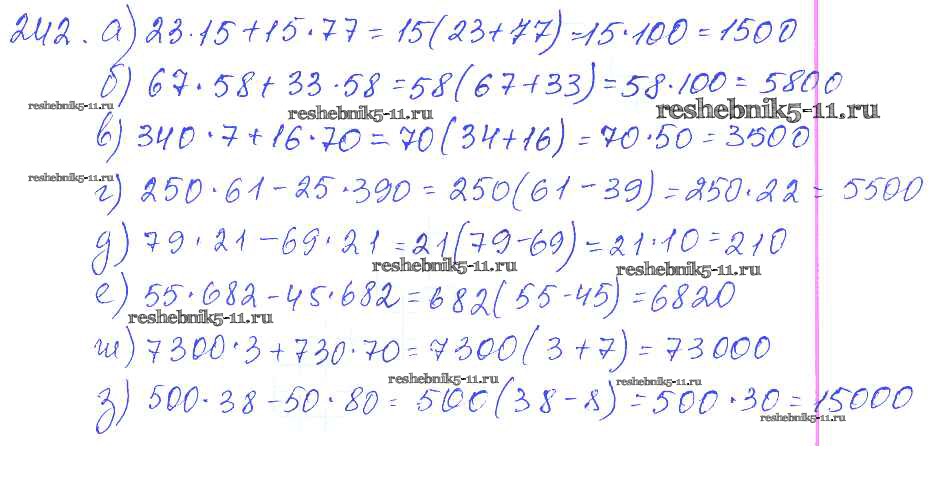 242. а) 23·15+15·77=15(23+77)=15·100=1500
б) 67·58+33·58=58(67+33)=58·100=5800
reshebnik5-11.ru
reshebnik5-11.ru
reshebnik5-11.ru
в) 340·7+16·70=70(34+16)=70·50=3500
reshebnik5-11.ru
г) 250·61-25·390=250(61-39)=250·22=5500
д) 79·21-69·21=21(79-69)=21·10=210
reshebnik5-11.ru
reshebnik5-11.ru
е) 55·682-45·682=682(55-45)=6820
reshebnik5-11.ru
ж) 7300·3+730·70=7300(3+7)=73000
reshebnik5-11.ru
reshebnik5-11.ru
з) 500·38-50·80=500(38-8)=500·30=15000
reshebnik5-11.ru